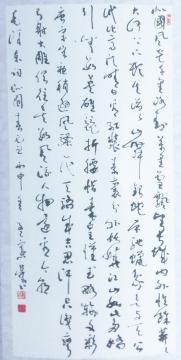 北国风光千里冰封万里雪飘望长城内外惟馀莽莽
大河上下顿失滔滔山舞银蛇原驰蜡象欲与天公
试比高须晴日看红装素裹分外妖娆江山如此多娇
引无数英雄竞折腰惜秦皇汉武略输文采
唐宗宋祖稍逊风骚一代天骄成吉思汗只识弯
弓射大雕俱往矣数风流人物还看今朝
毛泽东词沁园春